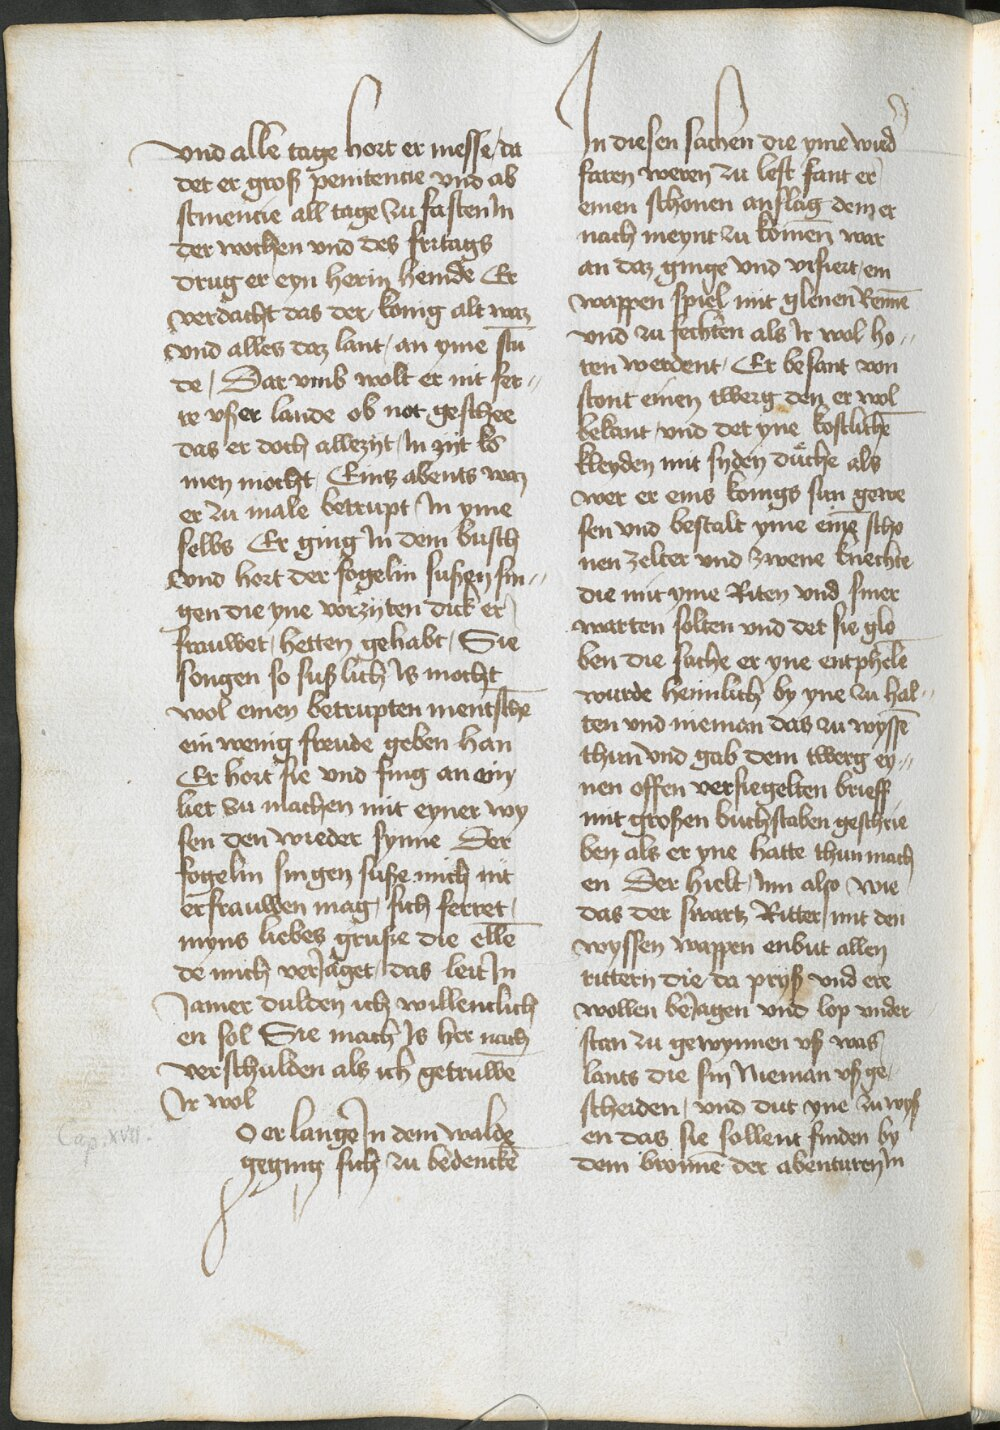 vnd alle tage hort er messe / da
det er groß penitencie vnd ab
stinencie all tage zu fasten In
der wochen vnd des fritags
drug er eyn herin hemde Er
verdacht das der konig alt waz
vnd alles daz lant / an yme stu
de / Dar vmb wolt er nit fer„
re vßer lande ob not geschee
das er doch allezijt / In zijt ko
men mocht / Eins abents waz
er zu male betrupt In yme
selbs Er ging In dem busch
vnd hort der fogelin sußen sin„
gen die yne vorzijten dick er
frauwet / hetten gehabt / Sie
songen so sußlich Is mocht
wol einen betrupten mentschē
ein wenig freude geben han
Er hort sie vnd fing an eyn
liet zu machen mit eyner wy
sen den wieder synne Der
fogelin singen suße mich nit
erfrauwen mag / sich ferret /
myns liebes gruße die ellē
de mich verJaget / das leit In
Jamer dulden ich willenclich
en sol Sie mach Is her nach
verschulden als ich getruwē
Ir wol
O er lange In dem walde
geging sich zu bedenckē
Cap. XVII.
In diesen sachen die yme wied
faren weren zu lest fant er
einen schonen anslag dem er
nach meynt zu komen war
an daz ginge vnd visiert / ein
wappen spiel mit glenen Rennē
vnd zu fechten als Ir wol ho„
ren werdent / Er besant von
stont einen twerg den er wol
bekant / vnd det yne kostlichē
kleyden mit syden duche als
wer er eins konigs sun gewe
sen vnd bestalt yme einē scho
nen zelter vnd zwene knechte
die mit yme Riten vnd siner
warten solten vnd det sie glo
ben die sache er yne entphelē
wurde heimlich by yne zu hal„
ten vnd nieman das zu wyssē
thun vnd gab dem twerg ey„
nen offen versiegelten brieff
mit großen buchstaben geschrie
ben als er yne hatte thun mach
en Der hielt / Inn also / wie
das der swartz Ritter / mit den
wyssen wappen enbut allen
rittern die da pryß vnd ere
wollen beJagen vnd lop vnder
stan zu gewynnen vß was
lants die sin Nieman vß ge„
scheiden / vnd dut yne zu wyß
en das sie sollent finden by
dem bronnē der abenturen In